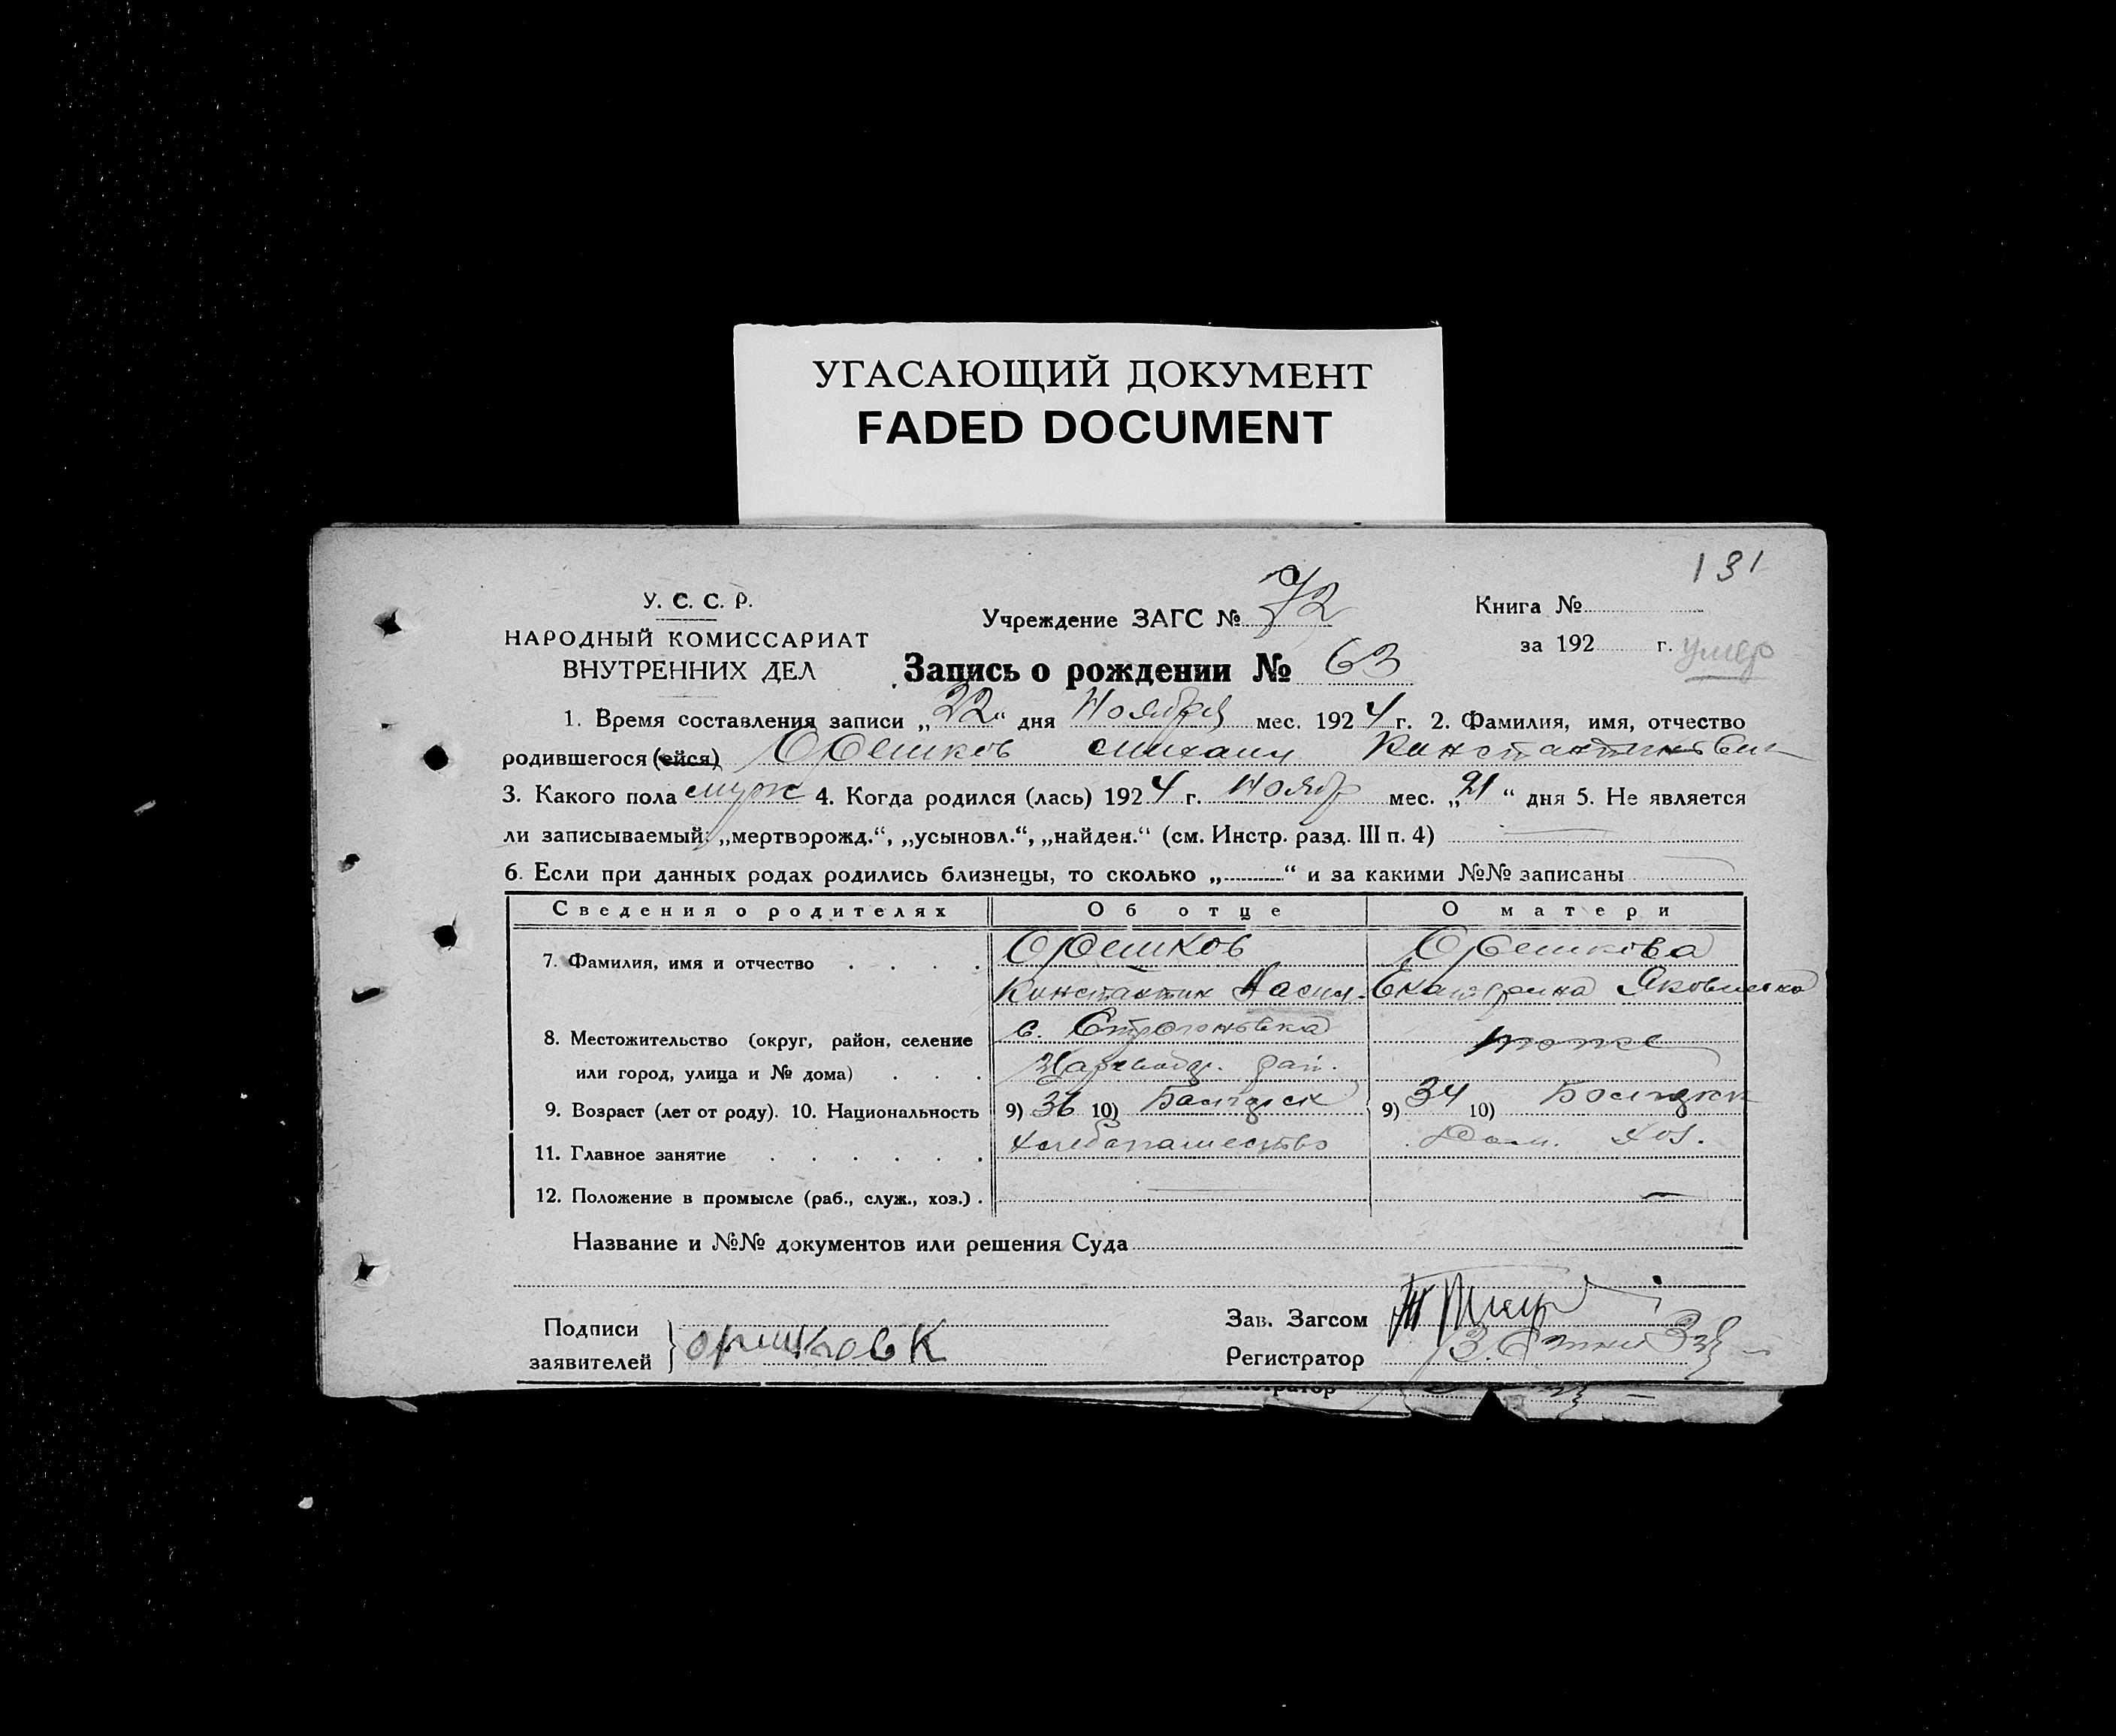 УГАСАЮЩИЙ ДОКУМЕНТ
FADED DOCUMENT
131
У. С. С. Р.
НАРОДНЫЙ КОМИССАРИАТ
ВНУТРЕННИХ ДЕЛ
Учреждение ЗАГС № 72
Книга №
за 192 г. умер
Запись о рождении № 63
1. Время составления записи „22“ дня Ноября мес. 1924 г. 2. Фамилия, имя, отчество
родившегося (ейся) Орешков Михаил Константинович
3. Какого пола муж 4. Когда родился (лась) 1924 г. Ноябр мес. „21“ дня 5. Не является
ли записываемый: „мертворожд.“, „усыновл.“, „найден.“ (см. Инстр. разд. III п. 4)
6. Если при данных родах родились близнецы, то сколько „ “ и за какими №№ записаны
Сведения о родителях Об отце О матери
7. Фамилия, имя и отчество Орешков Орешкова
Константин Екатерина Яковлевна
8. Местожительство (округ, район, селение с. Строгоновка тоже
или город, улица и № дома) рай.
9. Возраст (лет от роду). 10. Национальность 9) 36 10) 9) 34 10)
11. Главное занятие Хлебопашество Дом. хоз.
12. Положение в промысле (раб., служ., хоз.)
Название и №№ документов или решения Суда
Подписи
заявителей орешков К
Зав. Загсом
Регистратор
Регистратор